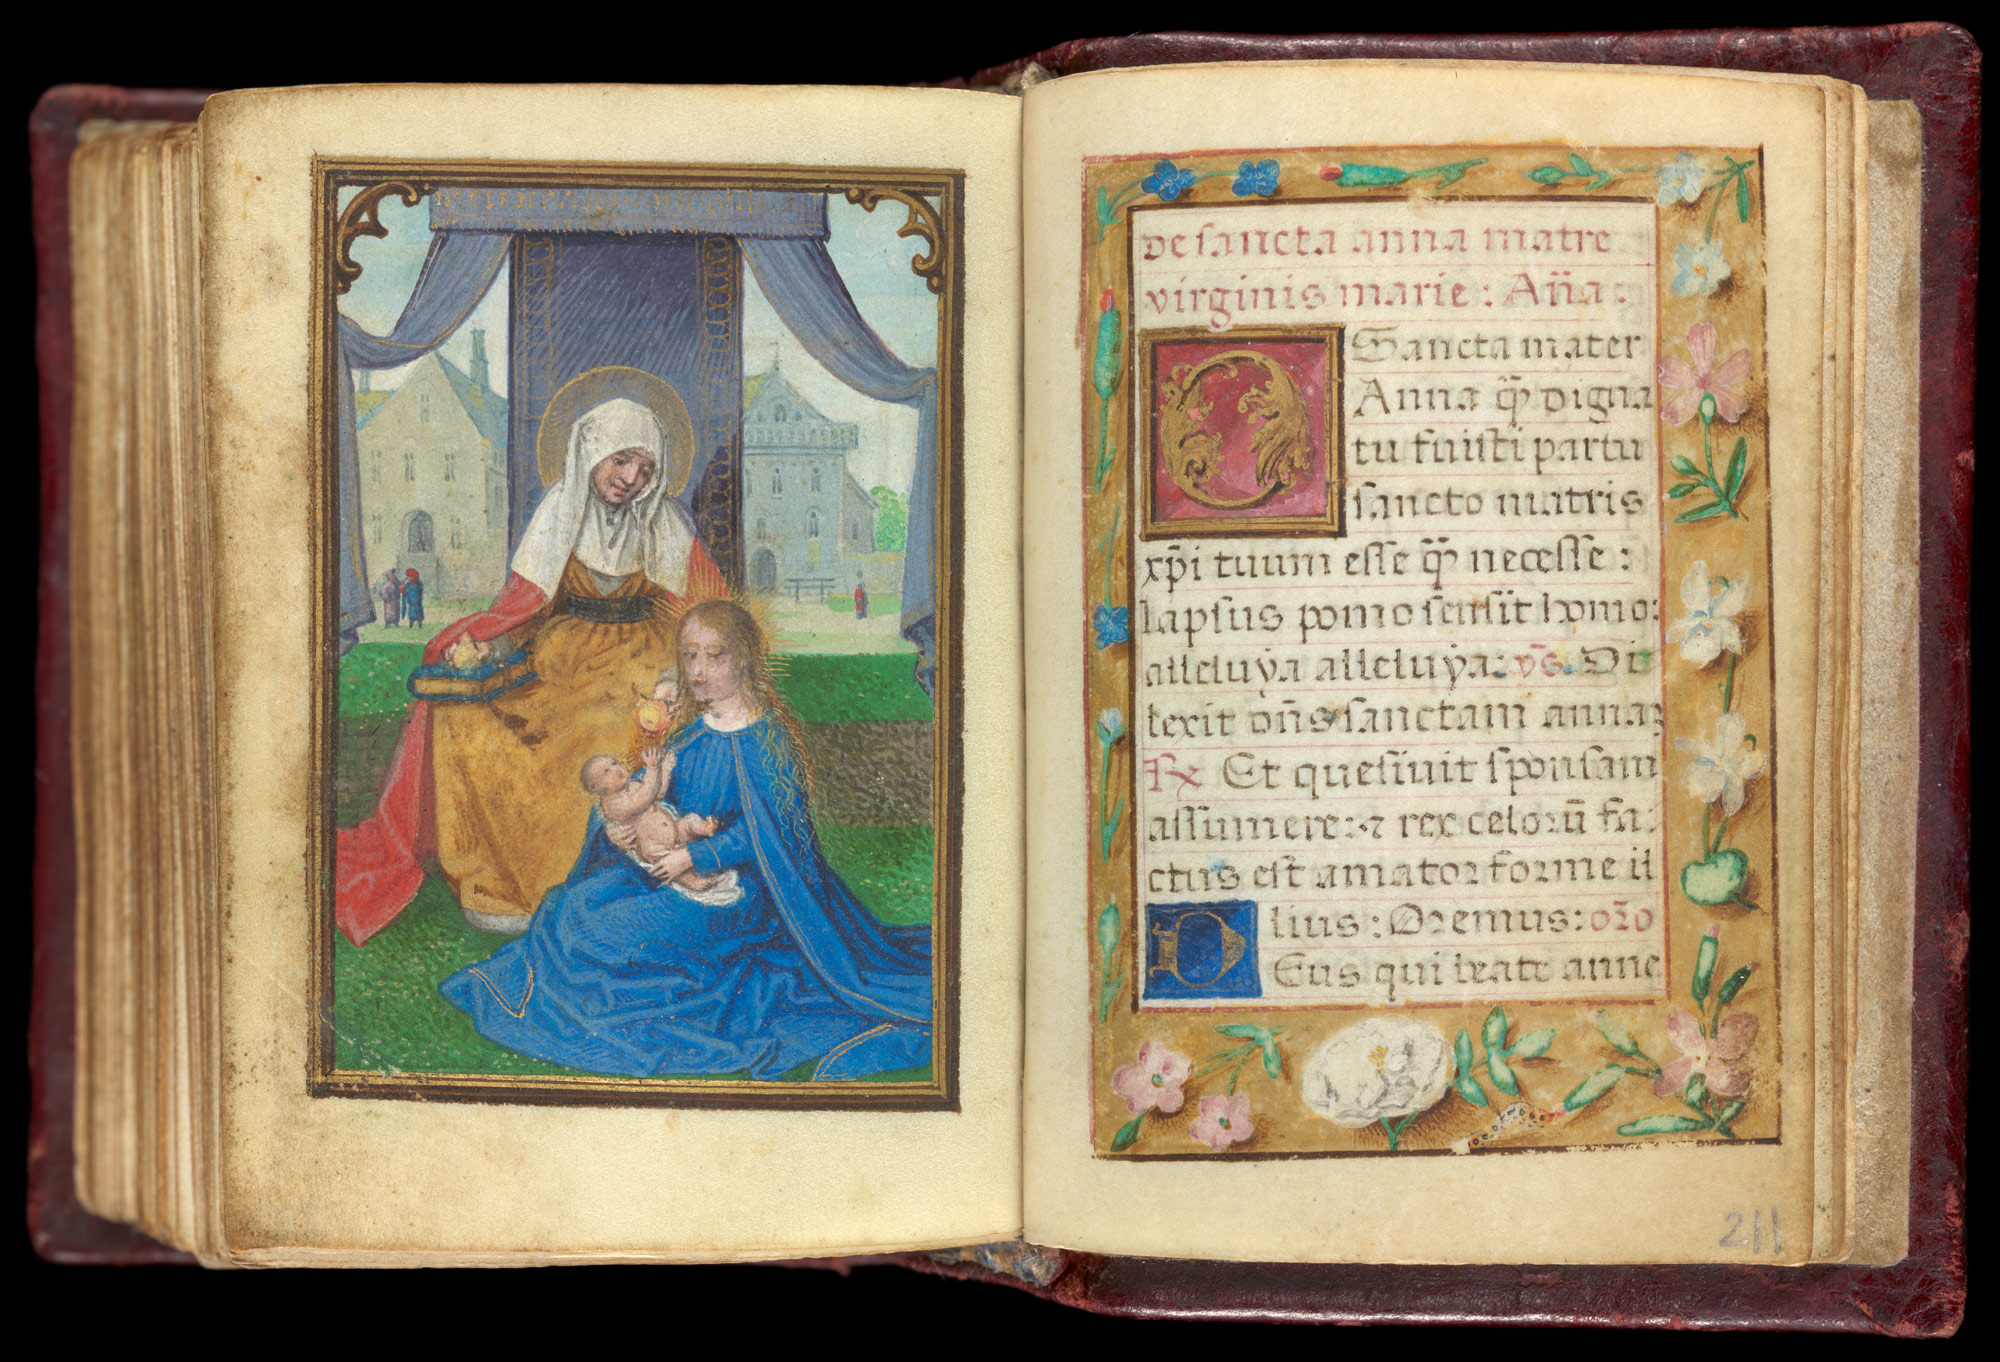 de sancta anna matre
virginis marie : An̄a :
O Sancta mater
Anna q̄ digna
tu fuisti partu
sancto matris
xp̄i tuum esse q̄ necesse :
lapsus pomo sensit homo:
alleluya alleluya: v̄s. Di
lexit dn̄s sanctam annaꝫ
Rx Et quesiuit sponsam
assumere: ⁊ rex celorū fa
ctus est amator forme il
lius : Oremus: or̄o
Deus qui beate anne
211